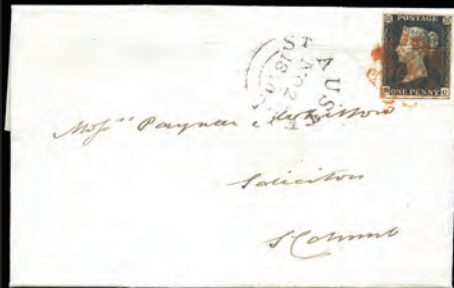 POSTAGE
ONE PENNY
ST AUSTELL
NO 2
1840
Mess^rs Paynter
Solicitors
St Columb